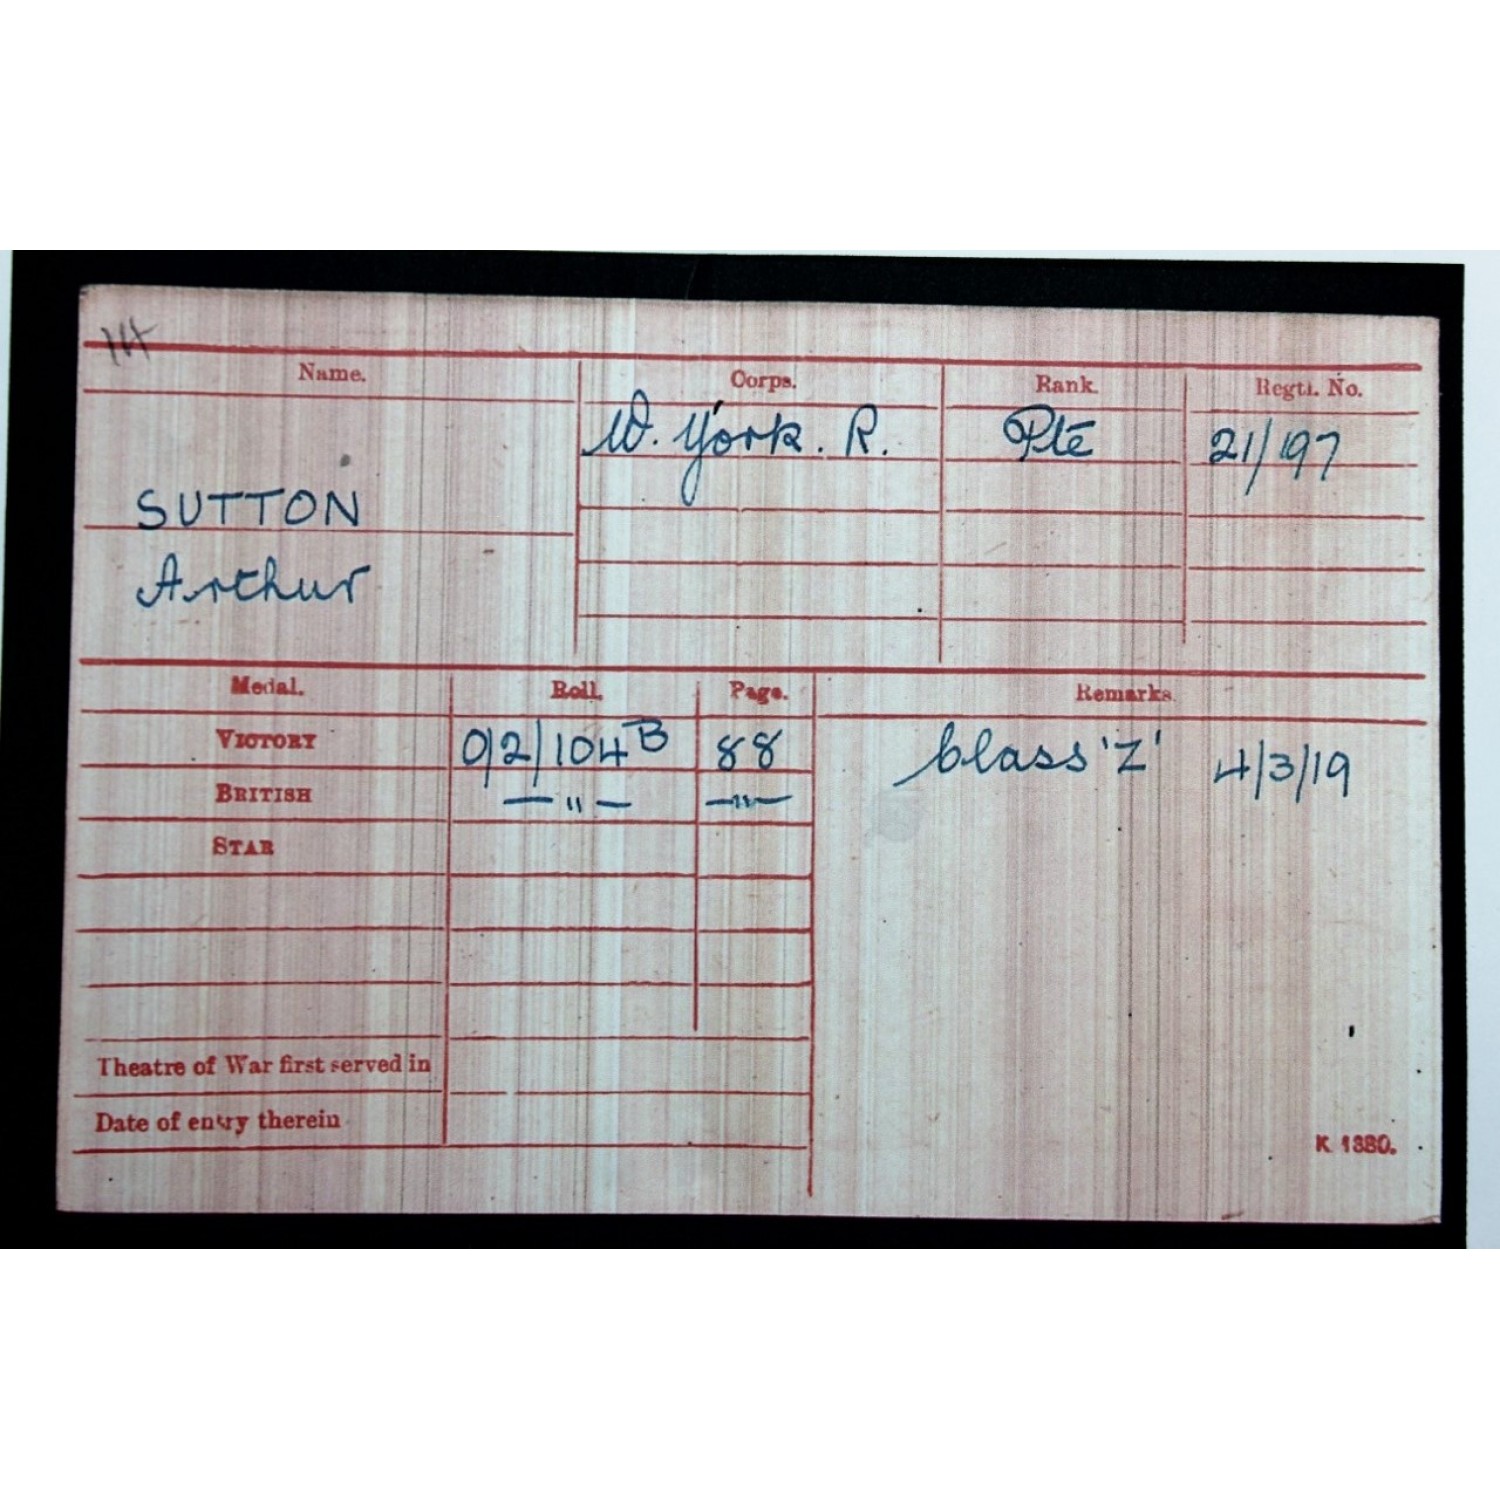 14
Name. Corps. Rank. Regtl. No.
W. York. R. Pte 21/197
SUTTON
Arthur
Medal. Roll. Page. Remarks.
VICTORY O/2/104B 88 Class 'Z' 4/3/19
BRITISH — " — — " —
STAR
Theatre of War first served in
Date of entry therein
K. 1380.